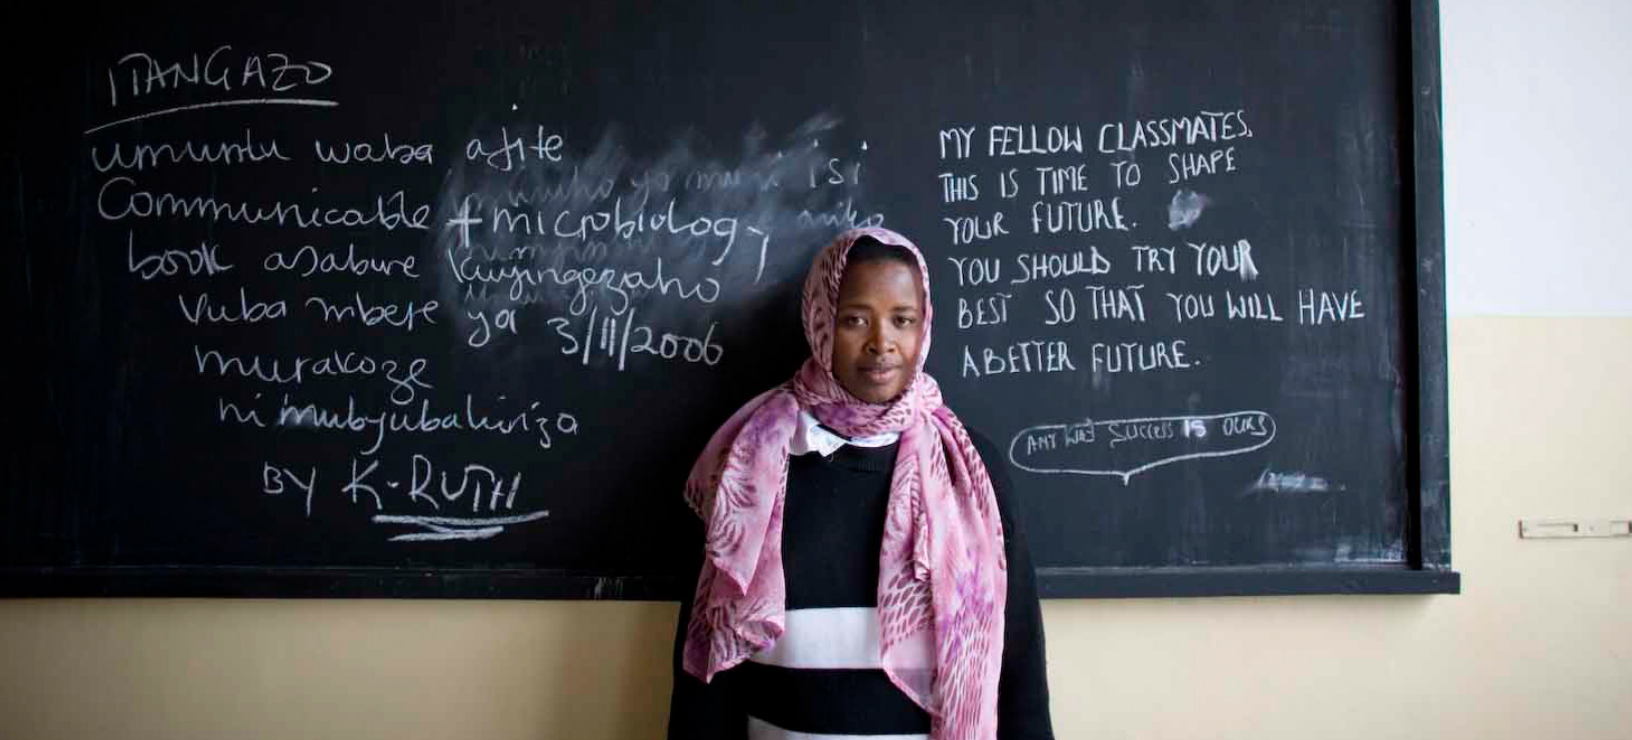 ITANGAZO
umuntu waba afite
Communicable + microbiology
book asabwe kuyingezaho
vuba mbere ya 3/11/2006
murakoze
ni mubyubahirize
BY K-RUTH
MY FELLOW CLASSMATES.
THIS IS TIME TO SHAPE
YOUR FUTURE.
YOU SHOULD TRY YOUR
BEST SO THAT YOU WILL HAVE
A BETTER FUTURE.
ANY WAY SUCCESS IS OURS